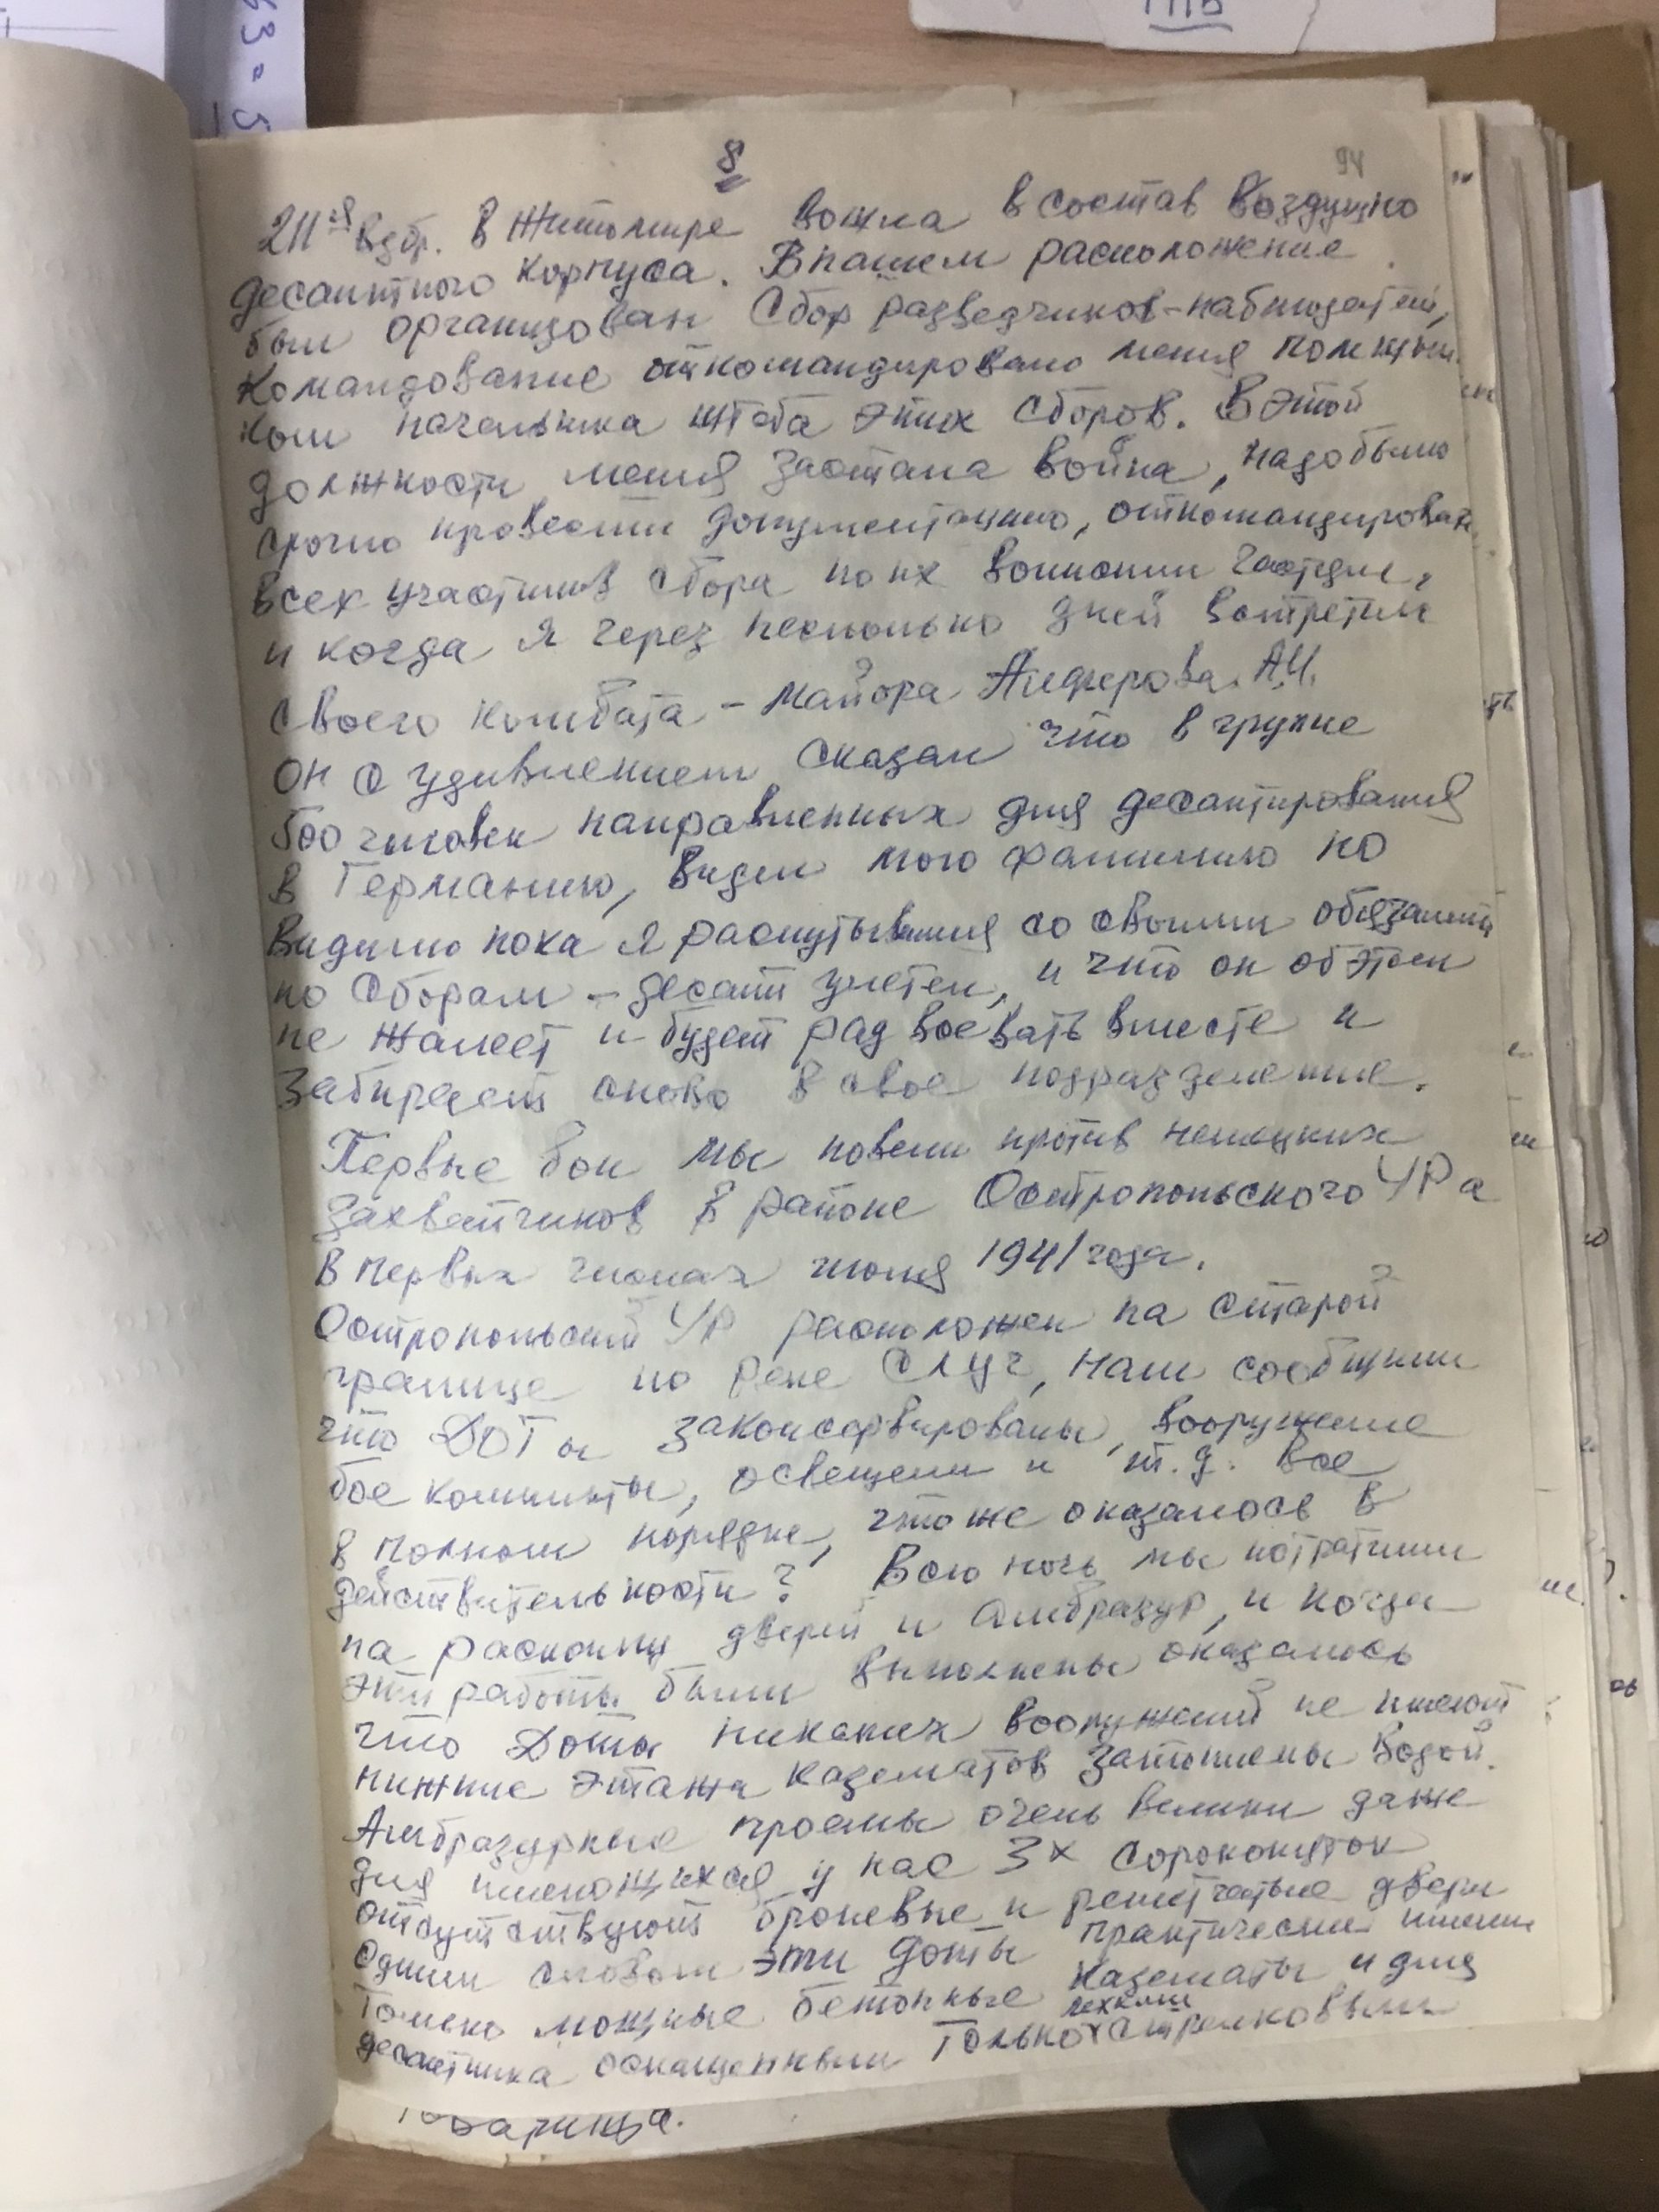 8
94
211ая Вдбр. в Житомире вошла в состав Воздушно
десантного корпуса. В нашем расположение
был организован Сбор разведчиков-наблюдателей,
командование откомандировано меня помощни
ком начальника штаба этих сборов. В этой
должности меня застала война, надо было
срочно провести документацию, откомандироват
всех участников сбора по их воинским частям,
и когда я через несколько дней встретил
своего комбата - майора А.И.
он с удивлением сказал что в группе
600 человек направленных для десантирования
в Германию, видел мою фамилию но
видимо пока я распутывался со своими обязанно
по Сборам - десант улетел, и что он об этом
не жалеет и будет рад воевать вместе и
забирает снова в свое подразделение.
Первые бои мы повели против немецких
захватчиков в районе Остропольского УРа
в первых числах июля 1941 года.
Остропольский УР расположен на старой
границе по реке Случ, нам сообщили
что ДОТы законсервированы, вооружение
боекомплкты, освещени и т.д. все
в полном порядке, что же оказалось в
действительности? Всю ночь мы потратили
на раскопку дверей и амбразур, и когда
эти работы были выполнены оказалось
что Доты никаких вооружений не имеют
нижние этажи казематов затоплены водой.
Амбразурные проемы очень велики даже
для имеющихся у нас 3х сорокопяток
отсутствуют броневые и решетчатые двери
Одним словом эти доты практически имели
только мощные бетонные казематы и для
легким
десантника оснащенными только стрелковыми
товарища.